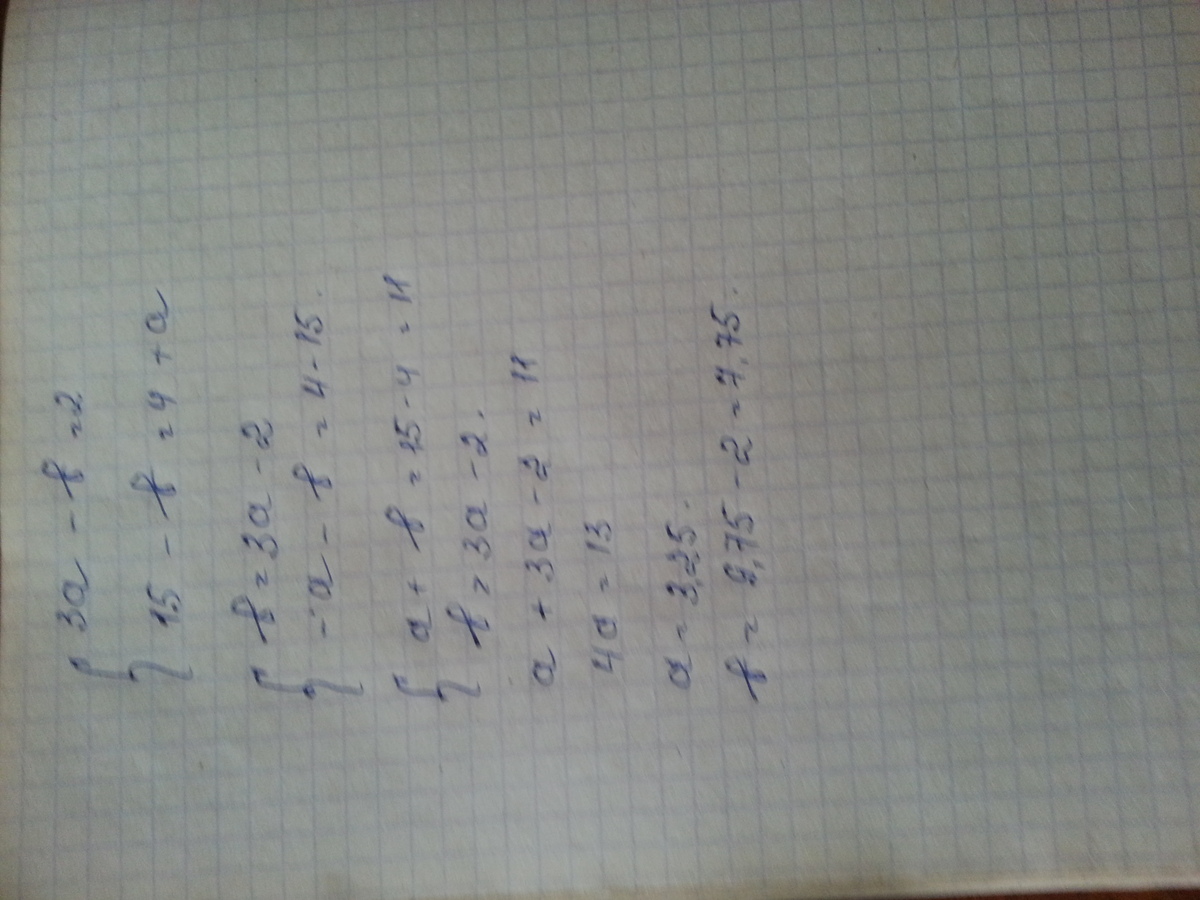 3a - b = 2
15 - b = 4 + a
b = 3a - 2
- a - b = 4 - 15.
a + b = 15 - 4 = 11
b = 3a - 2.
a + 3a - 2 = 11
4a = 13
a = 3,25.
b = 9,75 - 2 = 7,75.